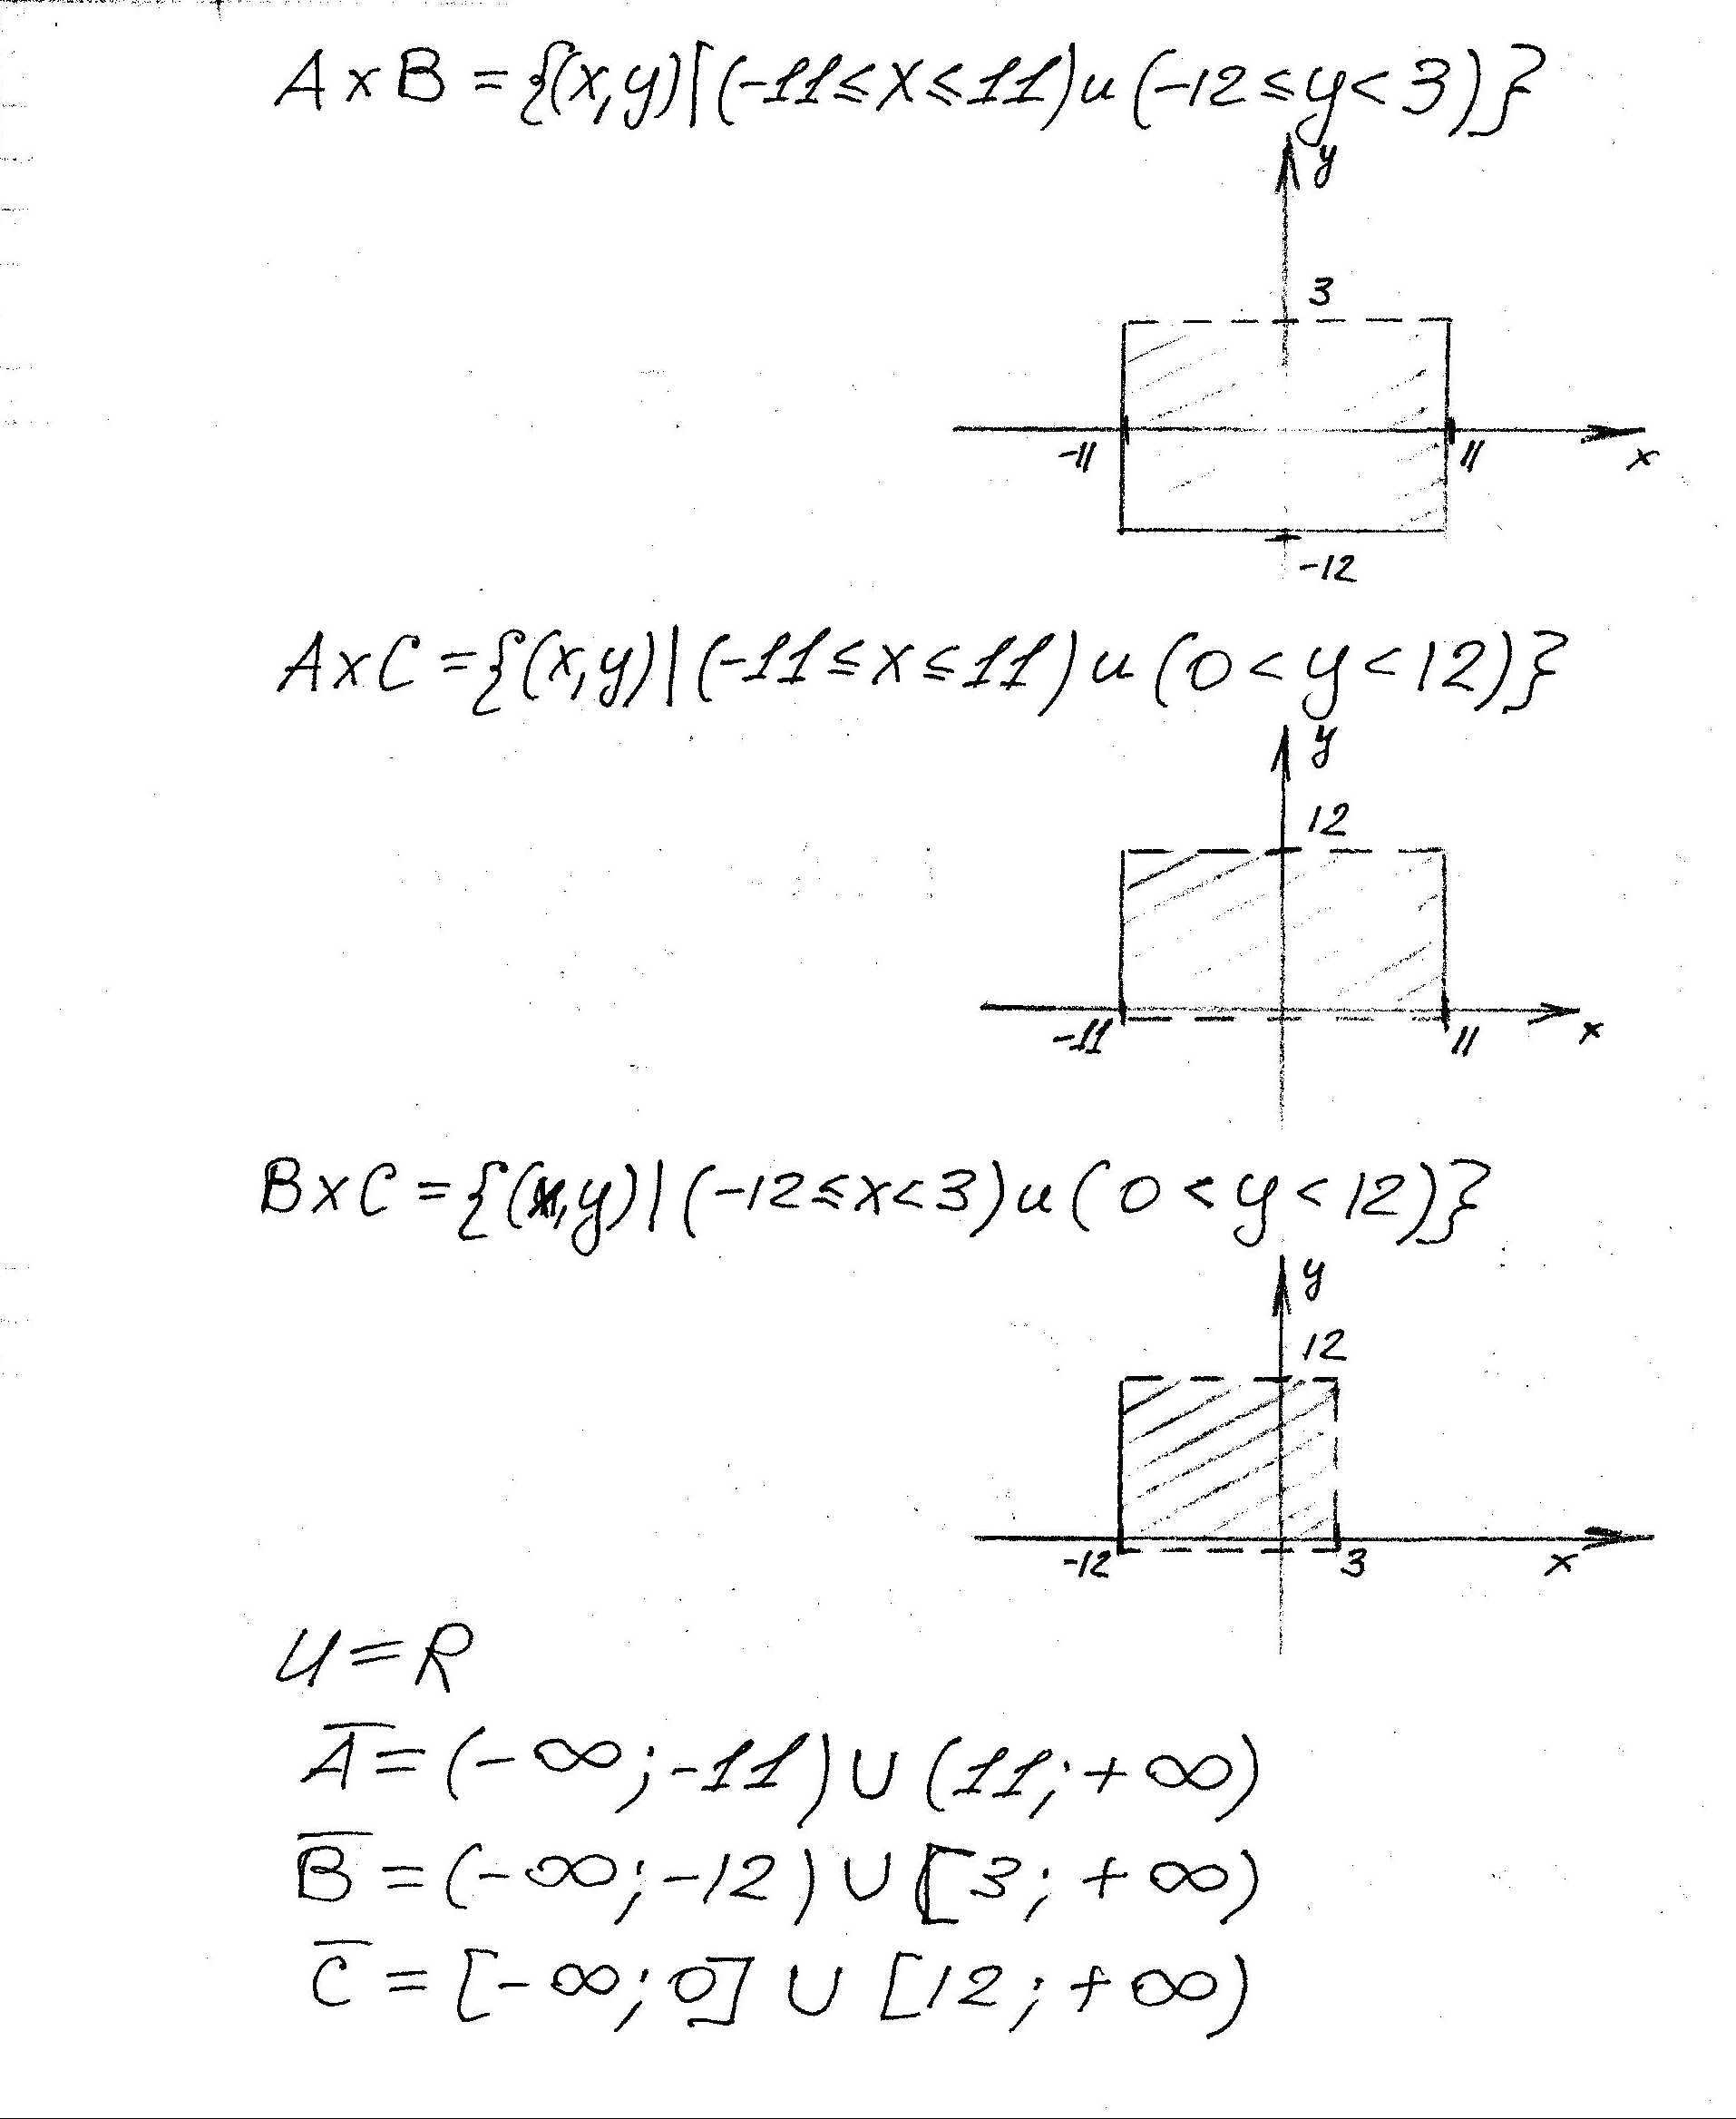 A×B = {(x,y)|(-11≤x≤11) и (-12≤y<3)}
y
3
-11
11
x
-12
A×C = {(x,y)|(-11≤x≤11) и (0<y<12)}
y
12
-11
11
x
B×C = {(x,y)|(-12≤x<3) и (0<y<12)}
y
12
-12
3
x
U=R
A̅ = (-∞;-11)∪(11;+∞)
B̅ = (-∞;-12)∪[3;+∞)
C̅ = [-∞;0]∪[12;+∞)